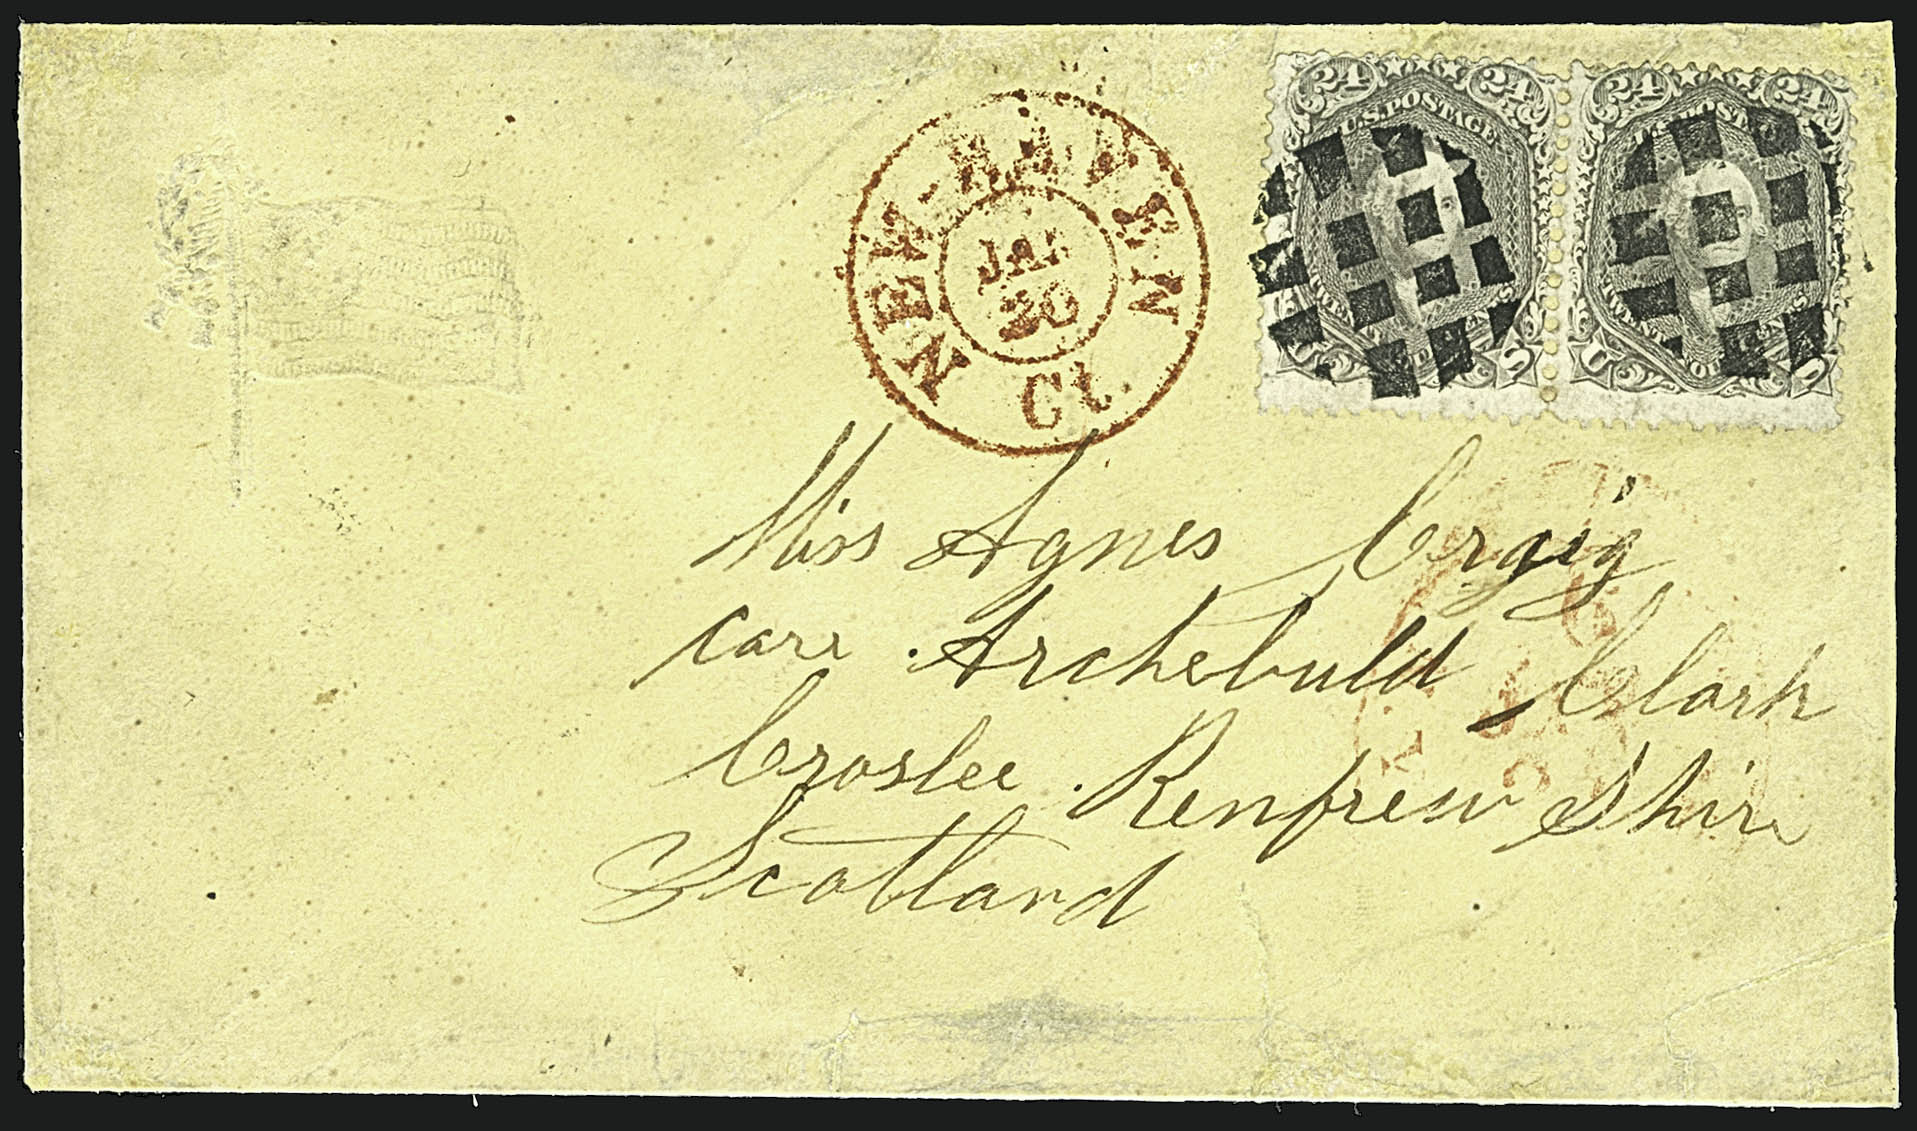 24 24 24 24
U.S. POSTAGE U.S. POST
U S U S
NEW-HAVEN
JAN
20
Ct.
Miss Agnes Craig
care Archebuld Clark
Croslee Renfrew Shire
Scotland